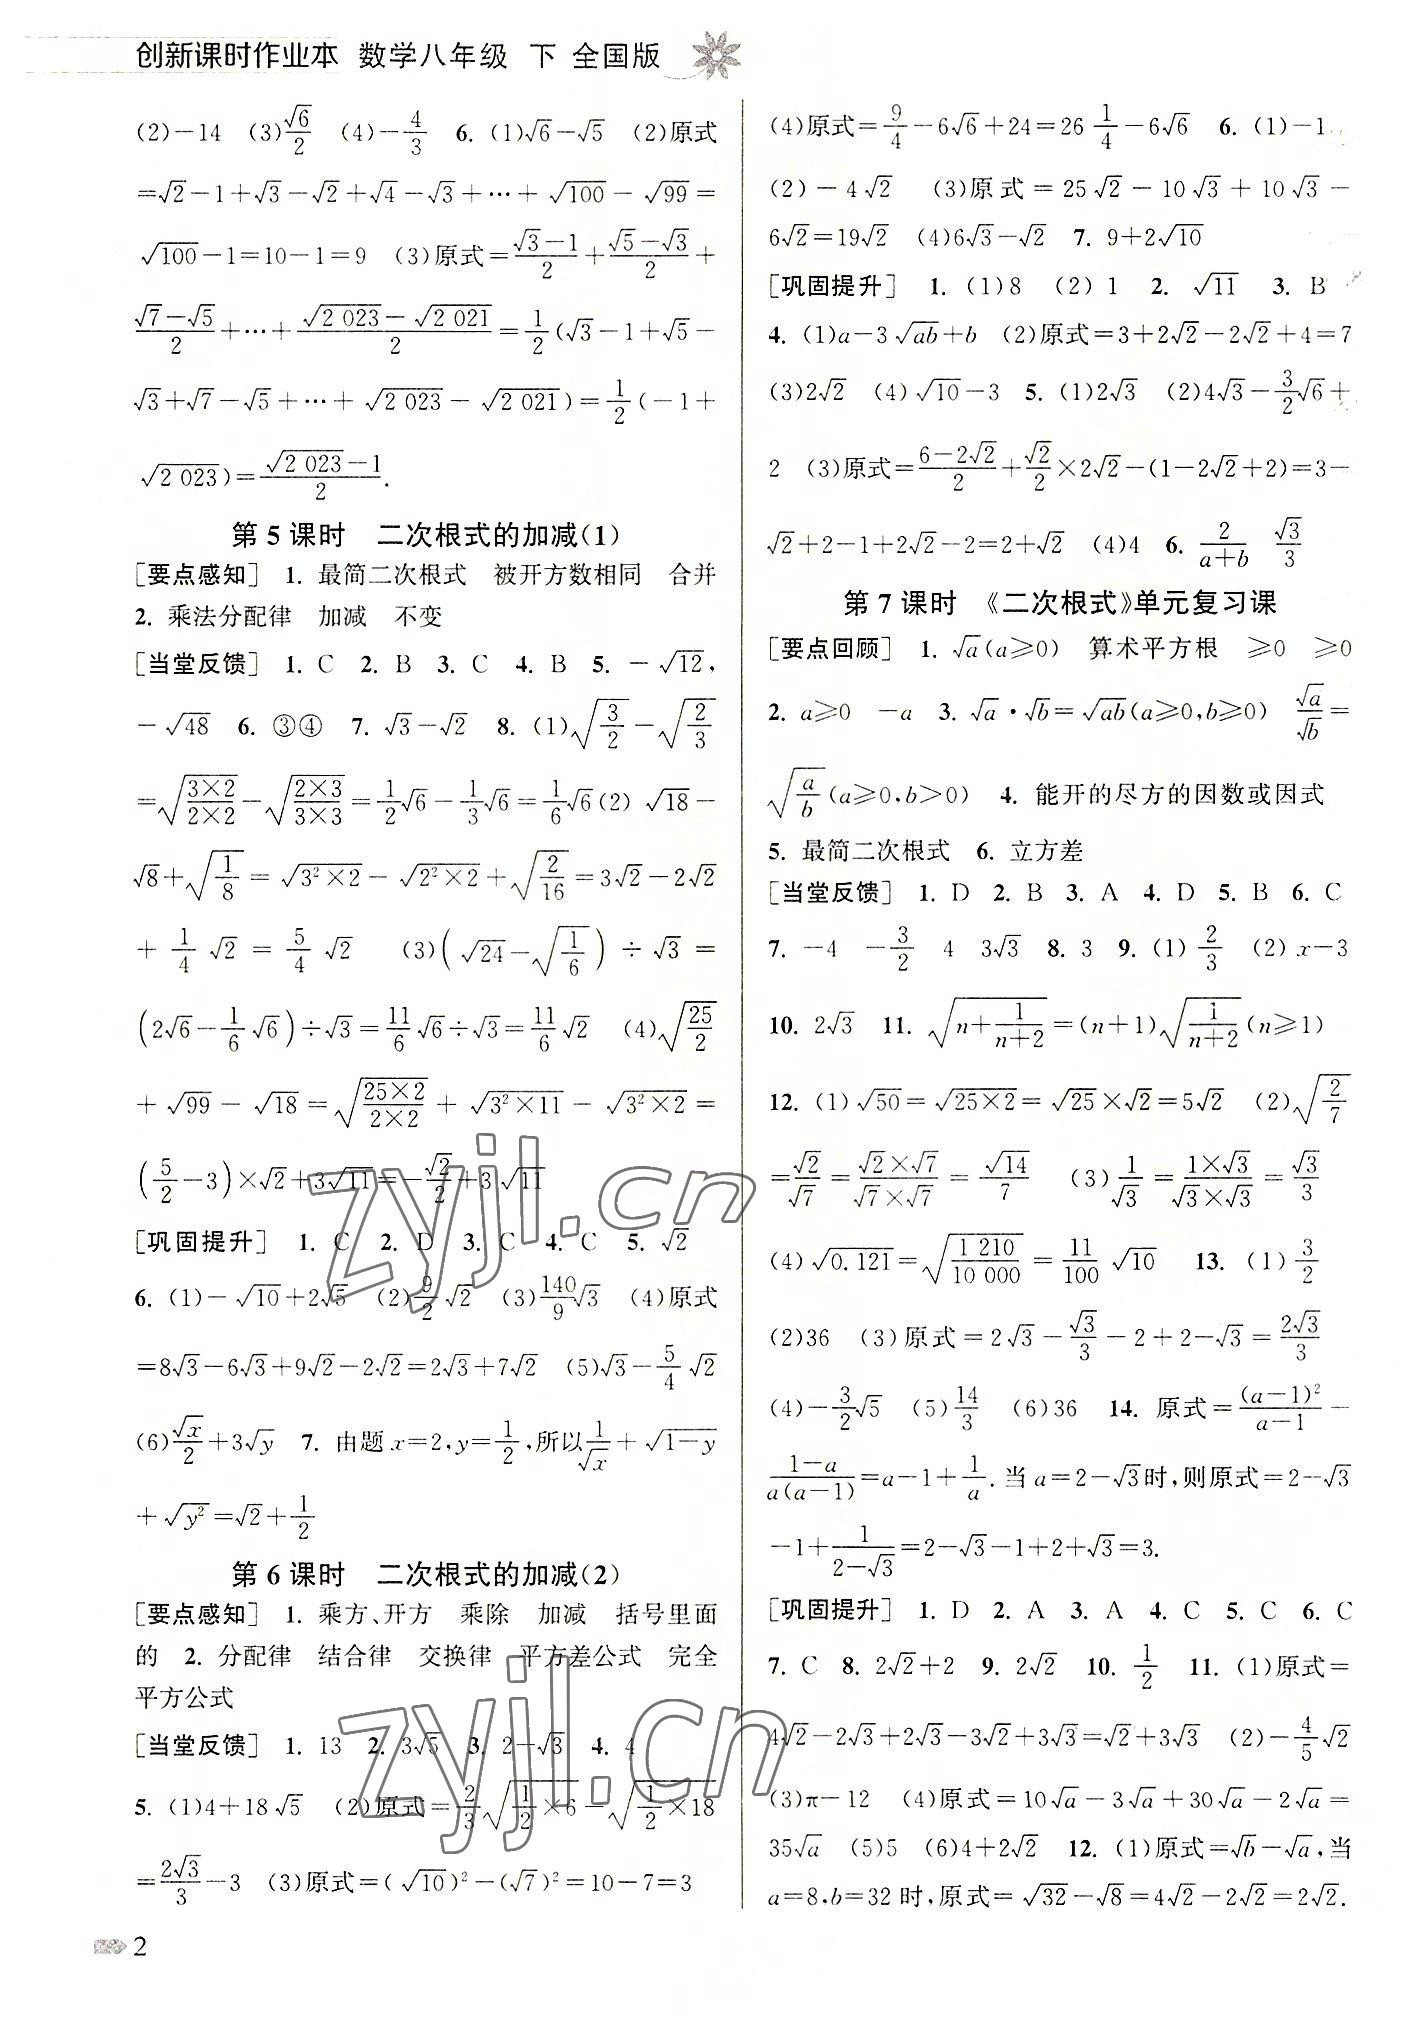 创新课时作业本 数学八年级 下 全国版
(2)-14 (3)√6/2 (4)-4/3 6. (1)√6-√5 (2)原式
=√2-1+√3-√2+√4-√3+…+√100-√99=
√100-1=10-1=9 (3)原式=(√3-1)/2+(√5-√3)/2+
(√7-√5)/2+…+(√2 023-√2 021)/2=1/2(√3-1+√5-
√3+√7-√5+…+√2 023-√2 021)=1/2(-1+
√2 023)=(√2 023-1)/2.
第 5 课时 二次根式的加减(1)
[要点感知] 1. 最简二次根式 被开方数相同 合并
2. 乘法分配律 加减 不变
[当堂反馈] 1. C 2. B 3. C 4. B 5. -√12,
-√48 6. ③④ 7. √3-√2 8. (1)√(3/2)-√(2/3)
=√((3×2)/(2×2))-√((2×3)/(3×3))=1/2√6-1/3√6=1/6√6(2) √18-
√8+√(1/8)=√(3²×2)-√(2²×2)+√(2/16)=3√2-2√2
+1/4√2=5/4√2 (3)(√24-√(1/6))÷√3=
(2√6-1/6√6)÷√3=11/6√6÷√3=11/6√2 (4)√(25/2)
+√99-√18=√((25×2)/(2×2))+√(3²×11)-√(3²×2)=
(5/2-3)×√2+3√11=-√2/2+3√11
[巩固提升] 1. C 2. D 3. C 4. C 5. √2
6. (1)-√10+2√5 (2)9/2√2 (3)140/9√3 (4)原式
=8√3-6√3+9√2-2√2=2√3+7√2 (5)√3-5/4√2
(6)√x/2+3√y 7. 由题x=2,y=1/2,所以1/√x+√(1-y)
+√(y²)=√2+1/2
第 6 课时 二次根式的加减(2)
[要点感知] 1. 乘方、开方 乘除 加减 括号里面
的 2. 分配律 结合律 交换律 平方差公式 完全
平方公式
[当堂反馈] 1. 13 2. 3√5 3. 2-√3 4. 4
5. (1)4+18√5 (2)原式=2/3√(1/2×6)-√(1/2×18)
=2√3/3-3 (3)原式=(√10)²-(√7)²=10-7=3
2
(4)原式=9/4-6√6+24=26 1/4-6√6 6. (1)-1
(2)-4√2 (3)原式=25√2-10√3+10√3-
6√2=19√2 (4)6√3-√2 7. 9+2√10
[巩固提升] 1. (1)8 (2)1 2. √11 3. B
4. (1)a-3√ab+b (2)原式=3+2√2-2√2+4=7
(3)2√2 (4)√10-3 5. (1)2√3 (2)4√3-3/2√6+
2 (3)原式=(6-2√2)/2+√2/2×2√2-(1-2√2+2)=3-
√2+2-1+2√2-2=2+√2 (4)4 6. 2/(a+b) √3/3
第 7 课时 《二次根式》单元复习课
[要点回顾] 1. √a(a≥0) 算术平方根 ≥0 ≥0
2. a≥0 -a 3. √a·√b=√ab(a≥0,b≥0) √a/√b=
√(a/b)(a≥0,b>0) 4. 能开的尽方的因数或因式
5. 最简二次根式 6. 立方差
[当堂反馈] 1. D 2. B 3. A 4. D 5. B 6. C
7. -4 -3/2 4 3√3 8. 3 9. (1)2/3 (2)x-3
10. 2√3 11. √(n+1/(n+2))=(n+1)√(1/(n+2))(n≥1)
12. (1)√50=√(25×2)=√25×√2=5√2 (2)√(2/7)
=√2/√7=(√2×√7)/(√7×√7)=√14/7 (3)1/√3=(1×√3)/(√3×√3)=√3/3
(4)√0.121=√(1 210/10 000)=11/100√10 13. (1)3/2
(2)36 (3)原式=2√3-√3/3-2+2-√3=2√3/3
(4)-3/2√5 (5)14/3 (6)36 14. 原式=(a-1)²/(a-1)-
(1-a)/(a(a-1))=a-1+1/a.当a=2-√3时,则原式=2-√3
-1+1/(2-√3)=2-√3-1+2+√3=3.
[巩固提升] 1. D 2. A 3. A 4. C 5. C 6. C
7. C 8. 2√2+2 9. 2√2 10. 1/2 11. (1)原式=
4√2-2√3+2√3-3√2+3√3=√2+3√3 (2)-4/5√2
(3)π-12 (4)原式=10√a-3√a+30√a-2√a=
35√a (5)5 (6)4+2√2 12. (1)原式=√b-√a,当
a=8,b=32时,原式=√32-√8=4√2-2√2=2√2.
zyjl.cn
zyjl.cn